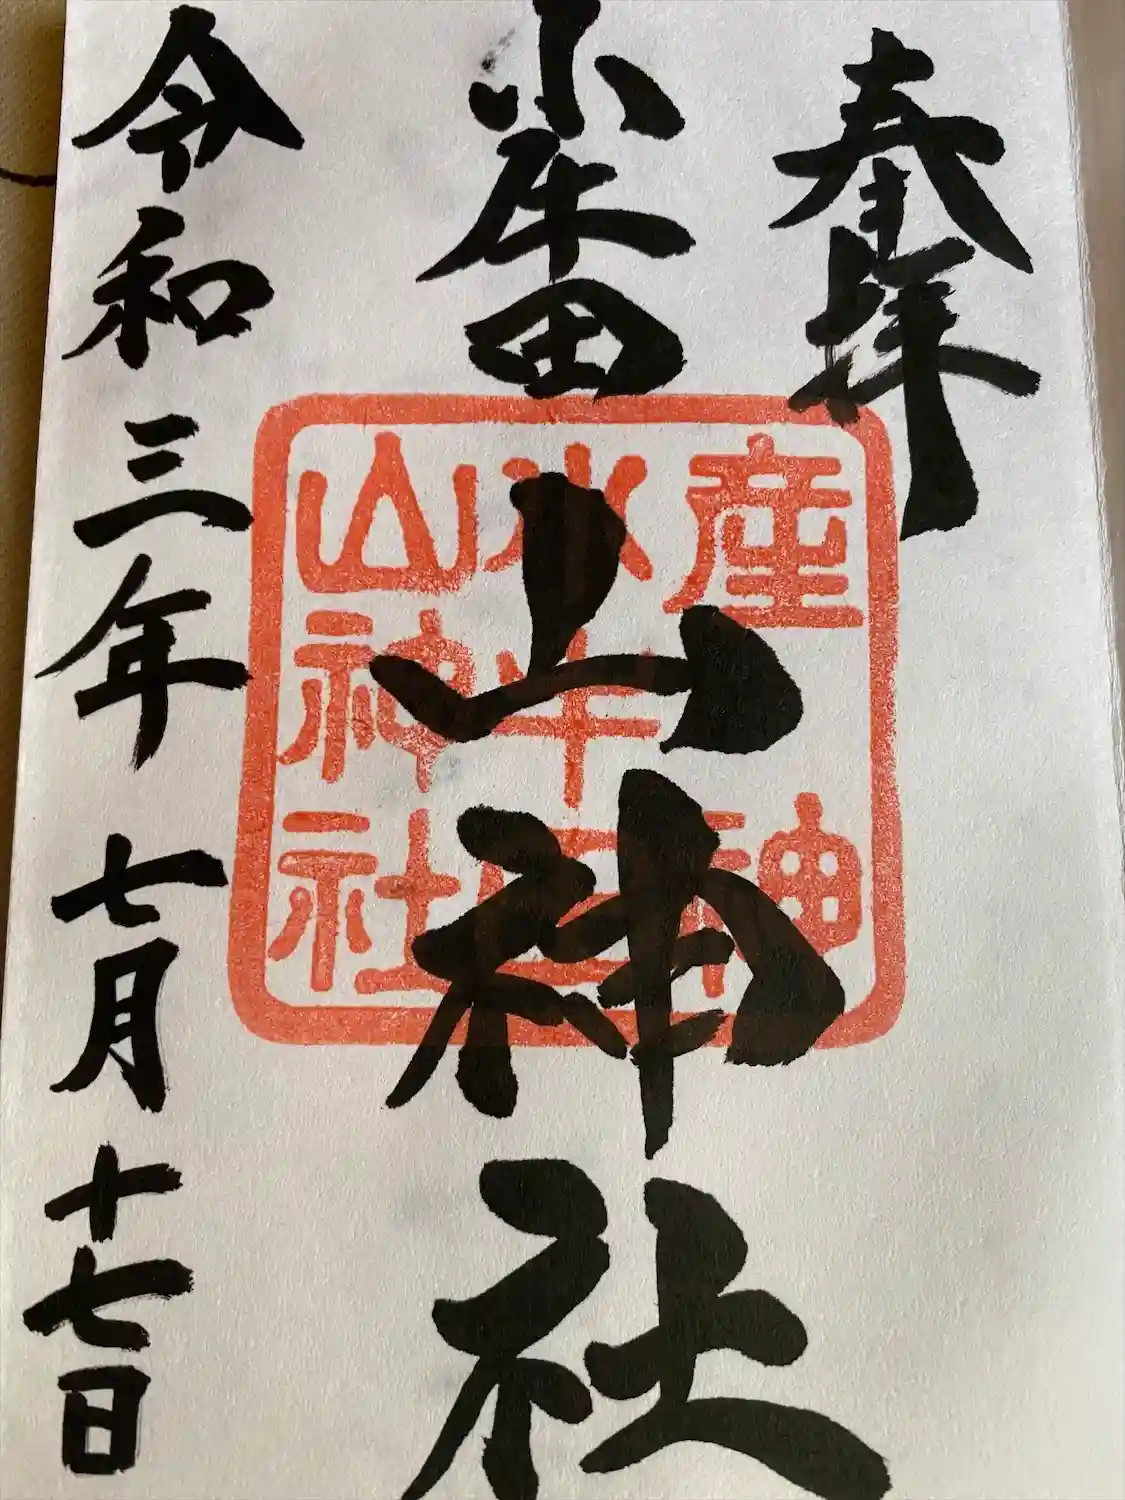 奉拝
小牛田山神社
令和三年七月十七日
産神
小牛田
山神社